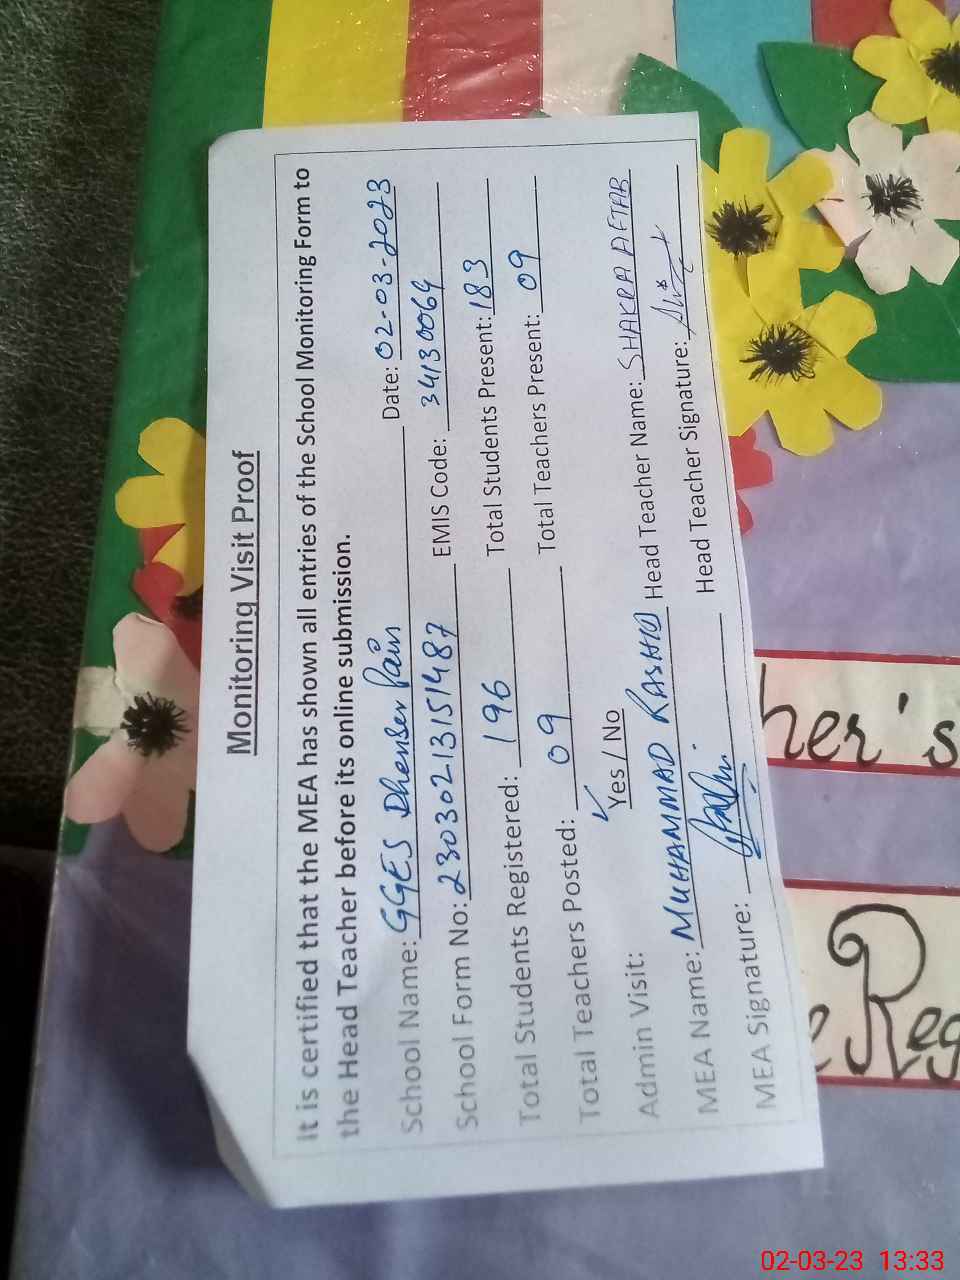 Monitoring Visit Proof
It is certified that the MEA has shown all entries of the School Monitoring Form to
the Head Teacher before its online submission.
School Name: GGES Dhenser Pain Date: 02-03-2023
School Form No: 23030213151487 EMIS Code: 34130064
Total Students Registered: 196 Total Students Present: 183
Total Teachers Posted: 09 Total Teachers Present: 09
Admin Visit: ✓ Yes / No
MEA Name: MUHAMMAD RASHID Head Teacher Name: SHAKRA AFTAB
MEA Signature: Head Teacher Signature:
her's
Reg
02-03-23 13:33